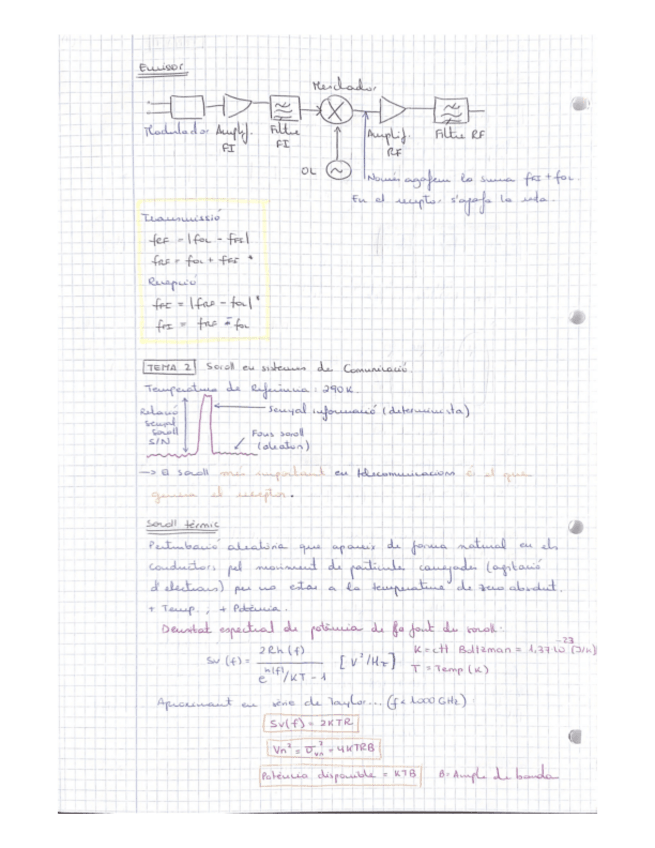 Emissor
Mesclador
Modulador Amplif. FI Filtre FI Amplif. RF Filtre RF
OL
Només agafem la suma fFI + fOL.
En el receptor s'agafa la resta.
Transmissió
fRF = |fOL - fFI|
fRF = fOL + fFI *
Recepció
fFI = |fRF - fOL| *
fFI = fRF + fOL
TEMA 2 Soroll en sistemes de Comunicació.
Temperatura de Referència: 290K.
Relació senyal soroll S/N
Senyal informació (determinista)
Fons soroll (aleatori)
→ El soroll més important en telecomunicacions és el que
genera el receptor.
Soroll tèrmic
Pertorbació aleatòria que apareix de forma natural en els
conductors pel moviment de partícules carregades (agitació
d'electrons) per no estar a la temperatura de zero absolut.
+ Temp., + Potència.
Densitat espectral de potència de la font de soroll:
Sv(f) = 2Rh(f) / e^h|f|/KT - 1 [V²/Hz]
K = ctt Boltzman = 1,37·10^-23 (J/K)
T = Temp (K)
Aproximant en sèrie de Taylor... (f < 1000 GHz)
Sv(f) = 2KTR
Vn² = σvn² = 4KTRB
Potència disponible = KTB B = Ample de banda